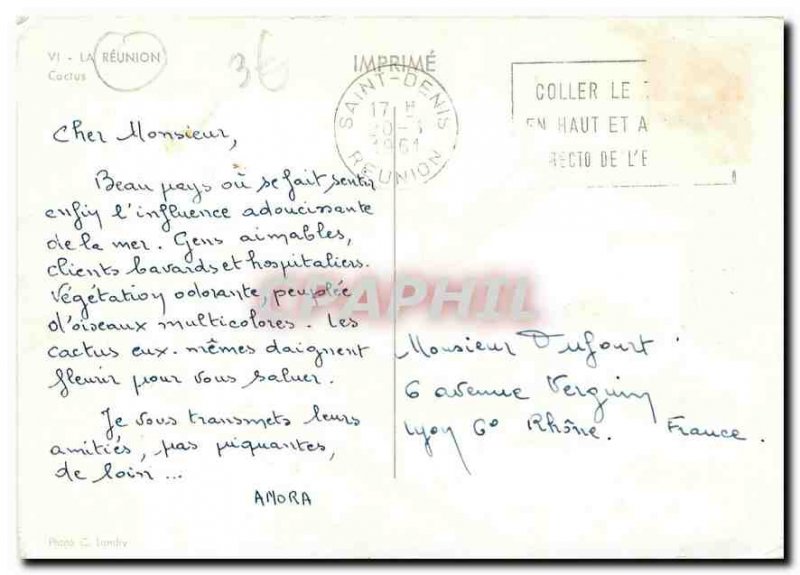 VI - LA RÉUNION
Cactus
3€
IMPRIMÉ
SAINT-DENIS
17 H
1961
RÉUNION
COLLER LE
EN HAUT ET A
RECTO DE L'E
Cher Monsieur,
Beau pays où se fait sentir
enfin l'influence adoucissante
de la mer. Gens aimables,
clients bavards et hospitaliers.
Végétation odorante, peuplée
d'oiseaux multicolores. Les
cactus eux-mêmes daignent
fleurir pour vous saluer.
Je vous transmets leurs
amitiés, pas piquantes,
de loin ...
AMORA
CPAPHIL
Monsieur Dufourt
6 avenue Verguin
Lyon 6° Rhône. France.
Photo C. Landry